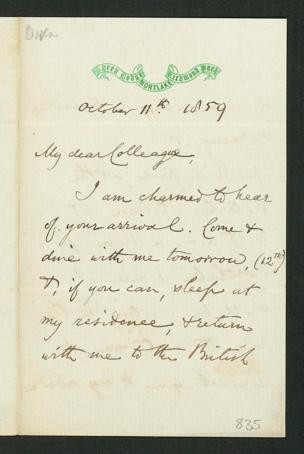 Owen
Sheen Lodge MORTLAKE Richmond Park
October 11th. 1859
My dear Colleague,
I am charmed to hear
of your arrival. Come &
dine with me tomorrow, (12th)
&, if you can, sleep at
my residence, & return
with me to the British
835